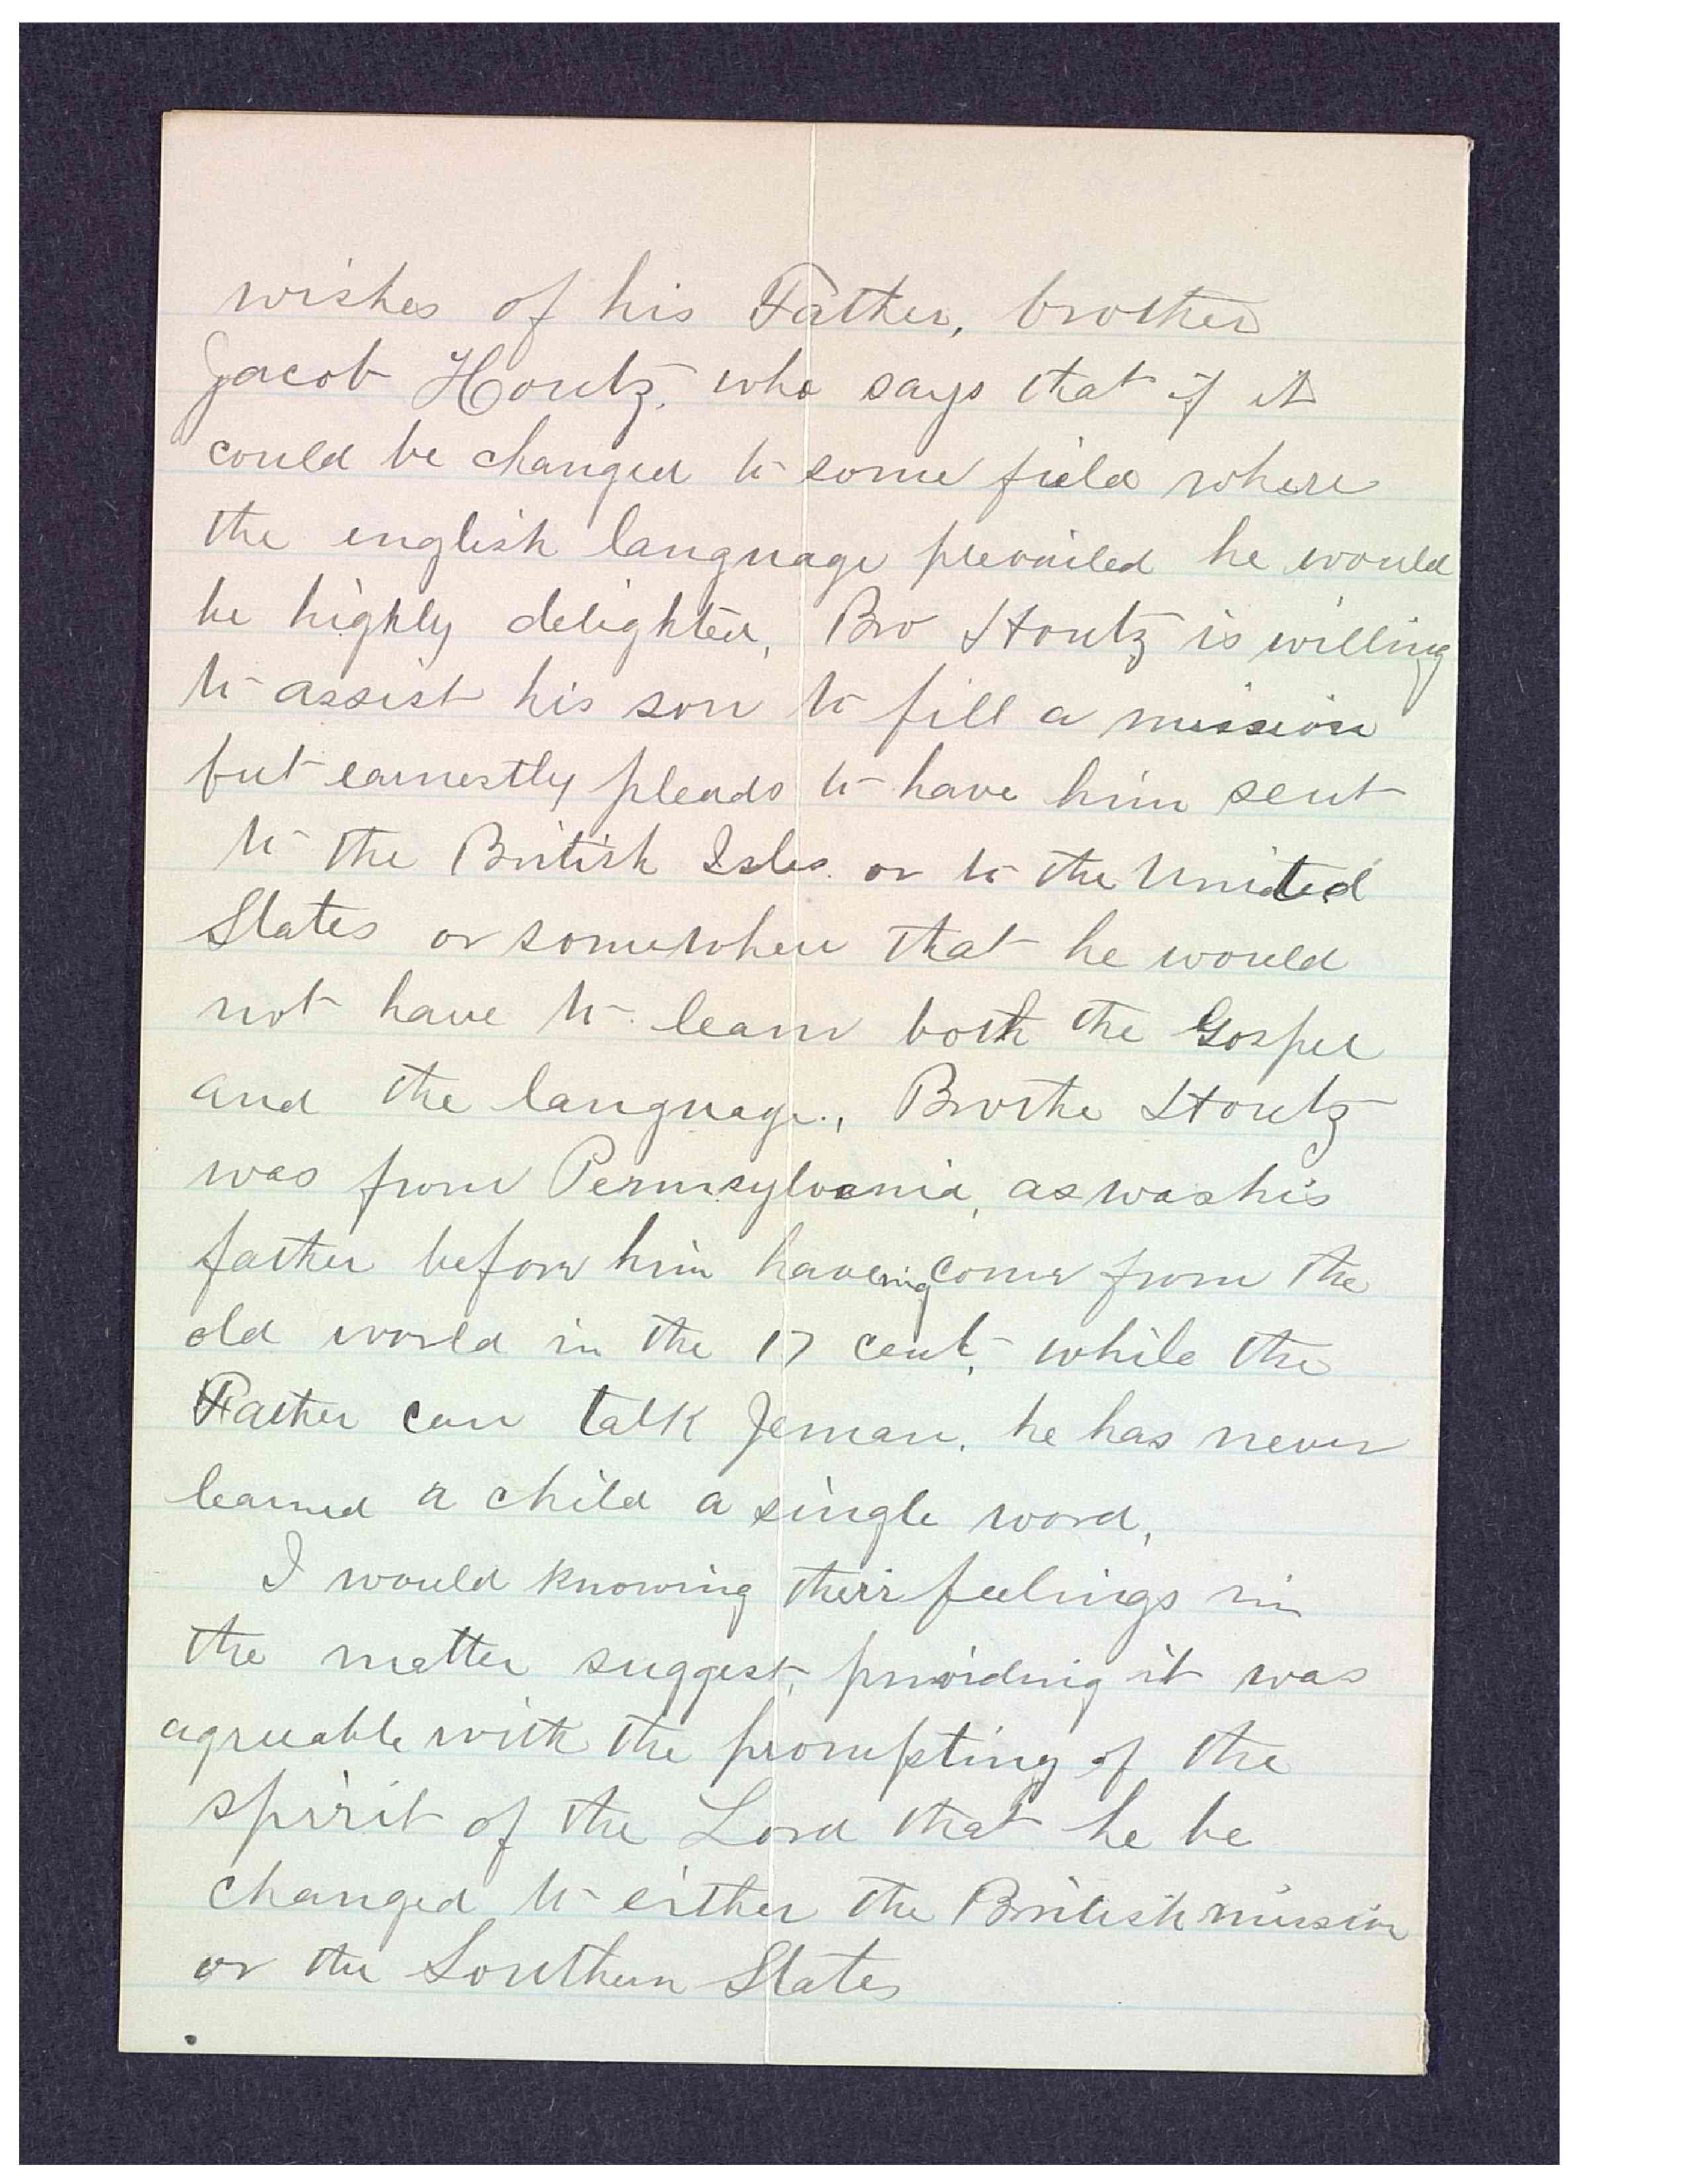 wishes of his Father, brother
Jacob Houtz, who says that if it
could be changed to some field where
the english language prevailed he would
be highly delighted, Bro Houtz is willing
to assist his son to fill a mission
but earnestly pleads to have him sent
to the British Isles. or to the United
States or somewhere that he would
not have to learn both the Gospel
and the language., Brothe Houtz
was from Pennsylvania, as was his
father before him having come from the
old world in the 17 cent. while the
Father can talk German, he has never
learned a child a single word,
I would knowing their feelings in
the matter suggest, providing it was
agreeable with the prompting of the
spirit of the Lord that he be
changed to either the British mission
or the Southern States